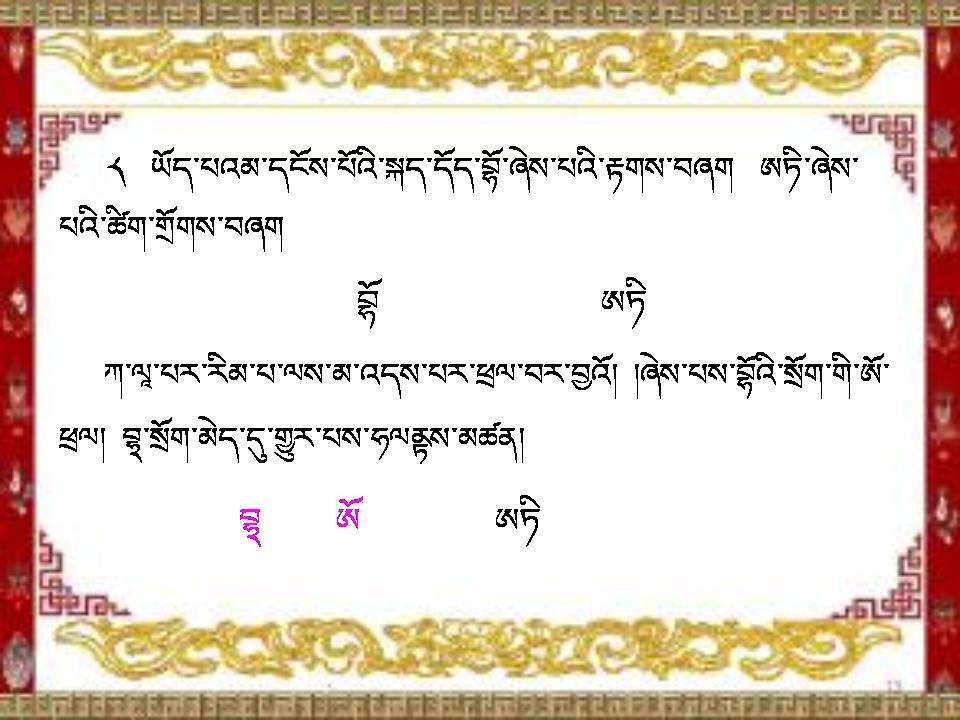 ༨ ཡོད་པའམ་དངོས་པོའི་སྐད་དོད་བྷོ་ཞེས་པའི་རྟགས་བཞག ཨཏི་ཞེས་
པའི་ཚིག་གྲོགས་བཞག
བྷོ ཨཏི
ཀ་ལཱ་པར་རིམ་པ་ལས་མ་འདས་པར་ཕྲལ་བར་བྱའོ། །ཞེས་པས་བྷོའི་སྲོག་གི་ཨོ་
ཕྲལ། བྷ྄་སྲོག་མེད་དུ་གྱུར་པས་ཧལནྟས་མཚན།
བྷ྄ ཨོ ཨཏི
13